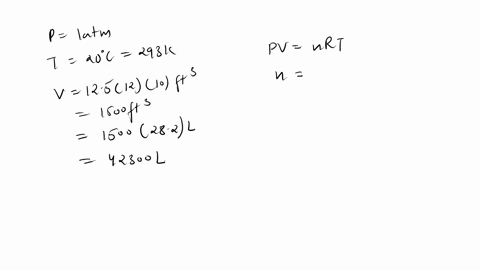 P = 1atm
T = 20°C = 293K
V = 12.5(12)(10) ft³
= 1500ft³
= 1500 (28.2) L
= 42300L
PV = nRT
n =